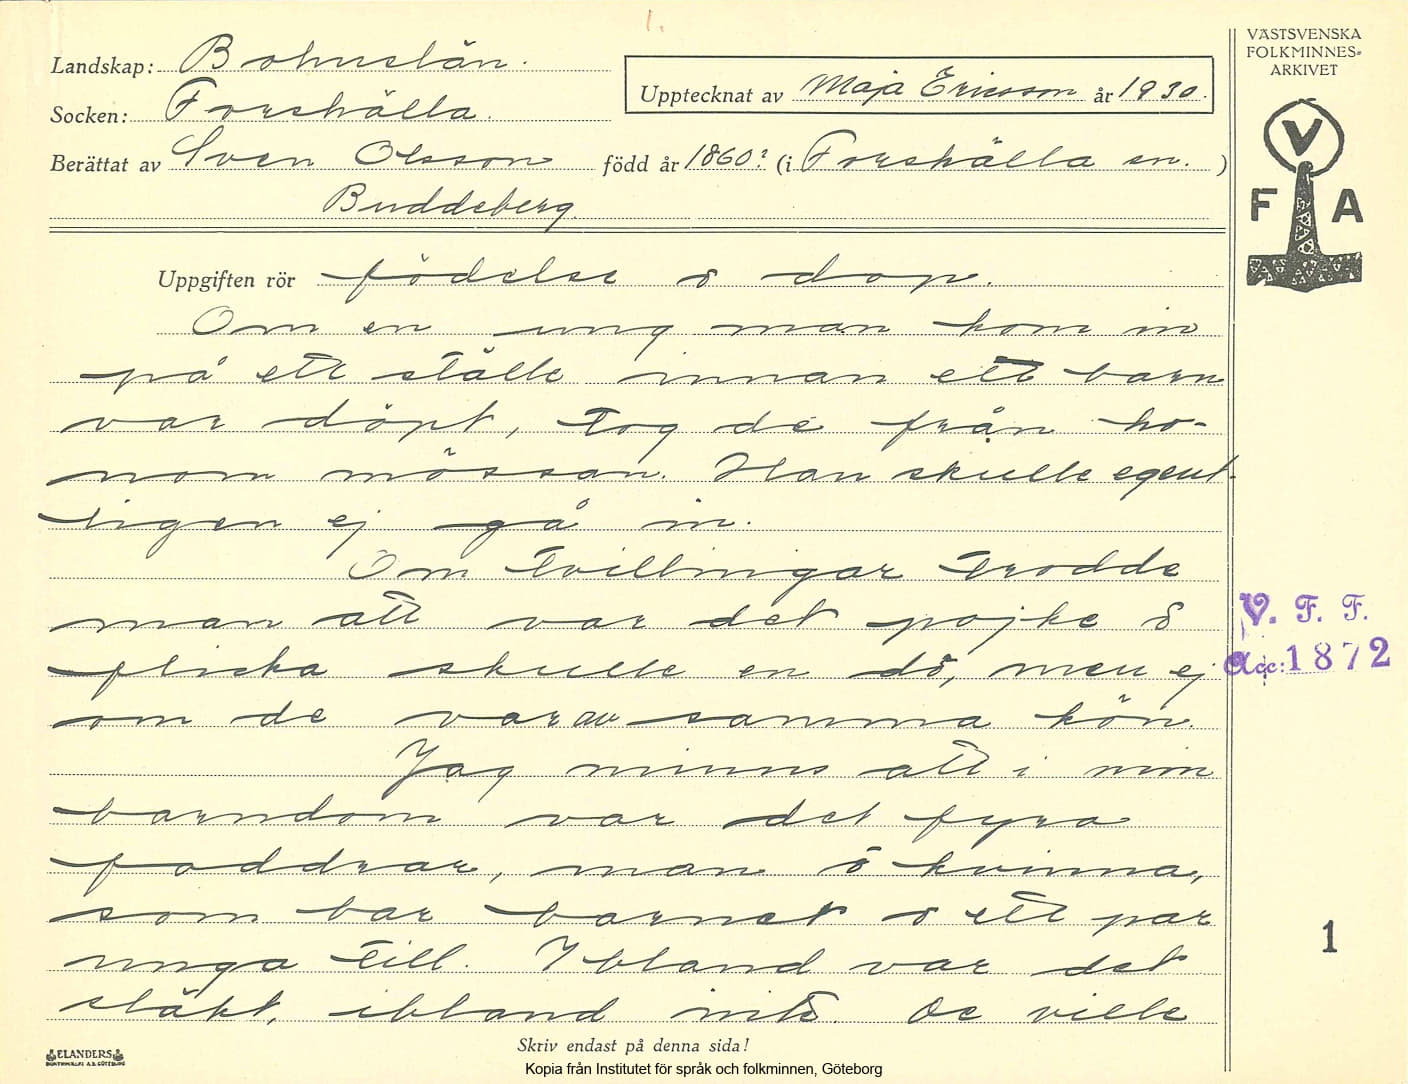 1.
Landskap: Bohuslän.
Socken: Forshälla.
Upptecknat av Maja Ericsson år 1930.
Berättat av Sven Olsson född år 1860? (i Forshälla sn. )
Buddeberg.
VÄSTSVENSKA
FOLKMINNES-
ARKIVET
V
F A
Uppgiften rör födelse o dop.
Om en ung man kom in
på ett ställe innan ett barn
var döpt, tog de från ho-
nom mössan. Han skulle egent-
ligen ej gå in.
Om tvillingar trodde
man att var det pojke o
flicka skulle en dö, men ej
om de var av samma kön.
Jag minns att i min
barndom var det fyra
faddrar, man o kvinna,
som bar barnet o ett par
unga till. Ibland var det
släkt, ibland inte. De ville
V. F. F.
Acc: 1872
1
ELANDERS
Skriv endast på denna sida!
Kopia från Institutet för språk och folkminnen, Göteborg